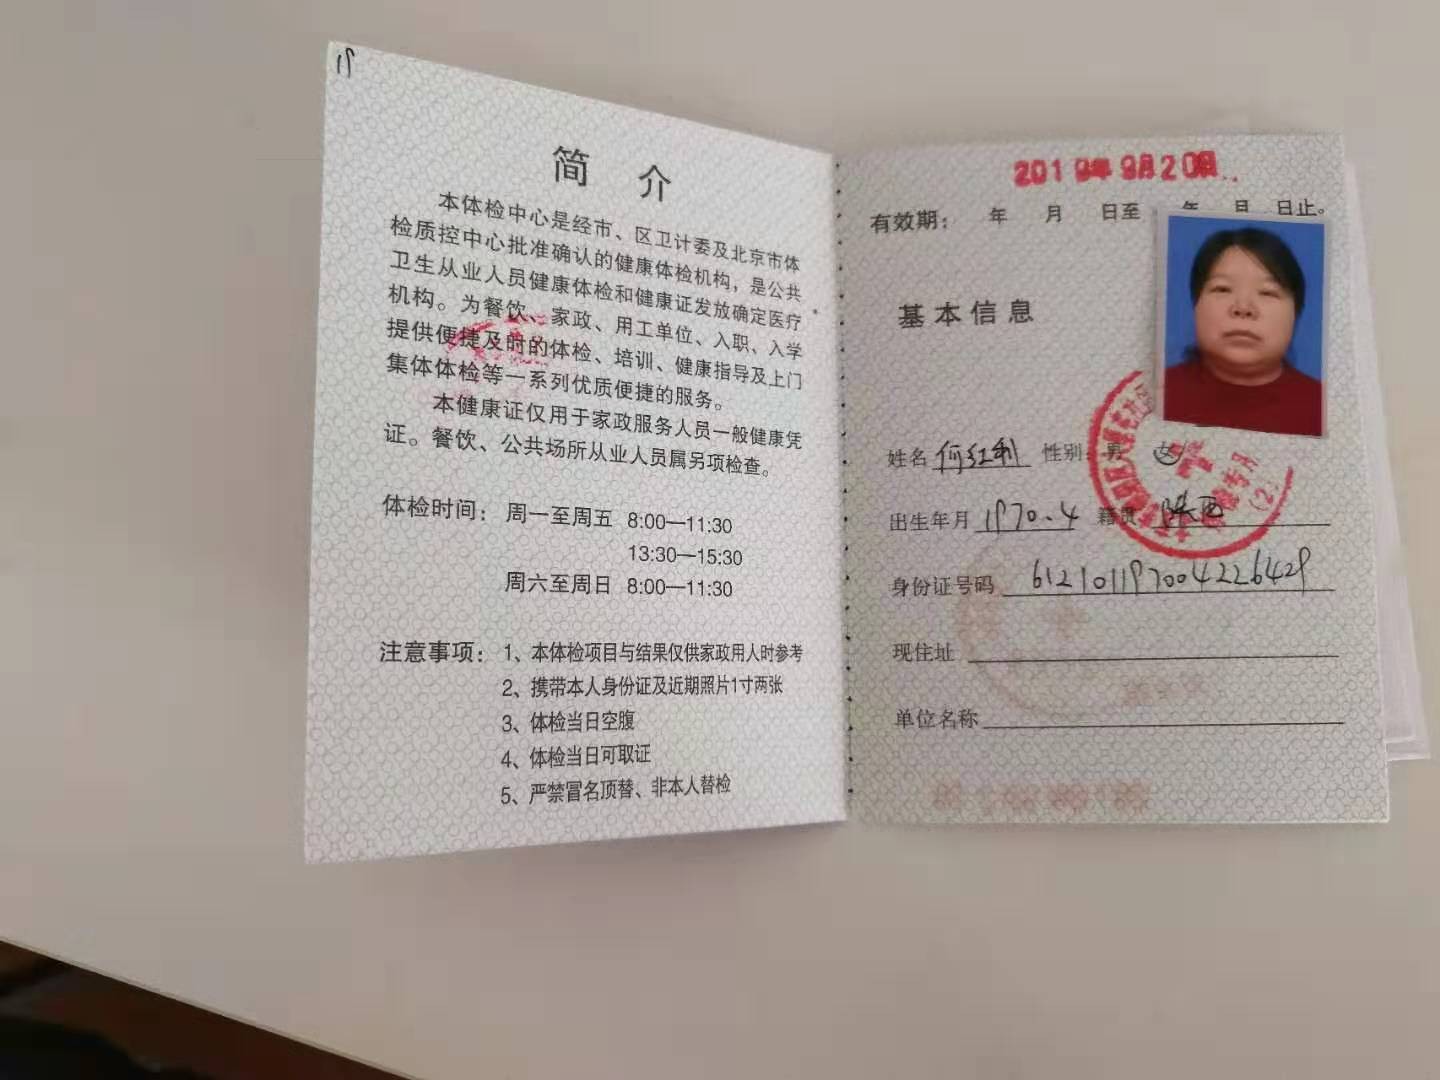 19
简 介
本体检中心是经市、区卫计委及北京市体
检质控中心批准确认的健康体检机构，是公共
卫生从业人员健康体检和健康证发放确定医疗
机构。为餐饮、家政、用工单位、入职、入学
提供便捷及时的体检、培训、健康指导及上门
集体体检等一系列优质便捷的服务。
本健康证仅用于家政服务人员一般健康凭
证。餐饮、公共场所从业人员属另项检查。
体检时间：周一至周五 8:00—11:30
13:30—15:30
周六至周日 8:00—11:30
注意事项：1、本体检项目与结果仅供家政用人时参考
2、携带本人身份证及近期照片1寸两张
3、体检当日空腹
4、体检当日可取证
5、严禁冒名顶替、非本人替检
2019年9月20日
有效期： 年 月 日至 年 月 日止。
基本信息
姓名 何红利 性别：男 女
出生年月 1970.4 籍贯 陕西
身份证号码 612101197004226429
现住址
单位名称